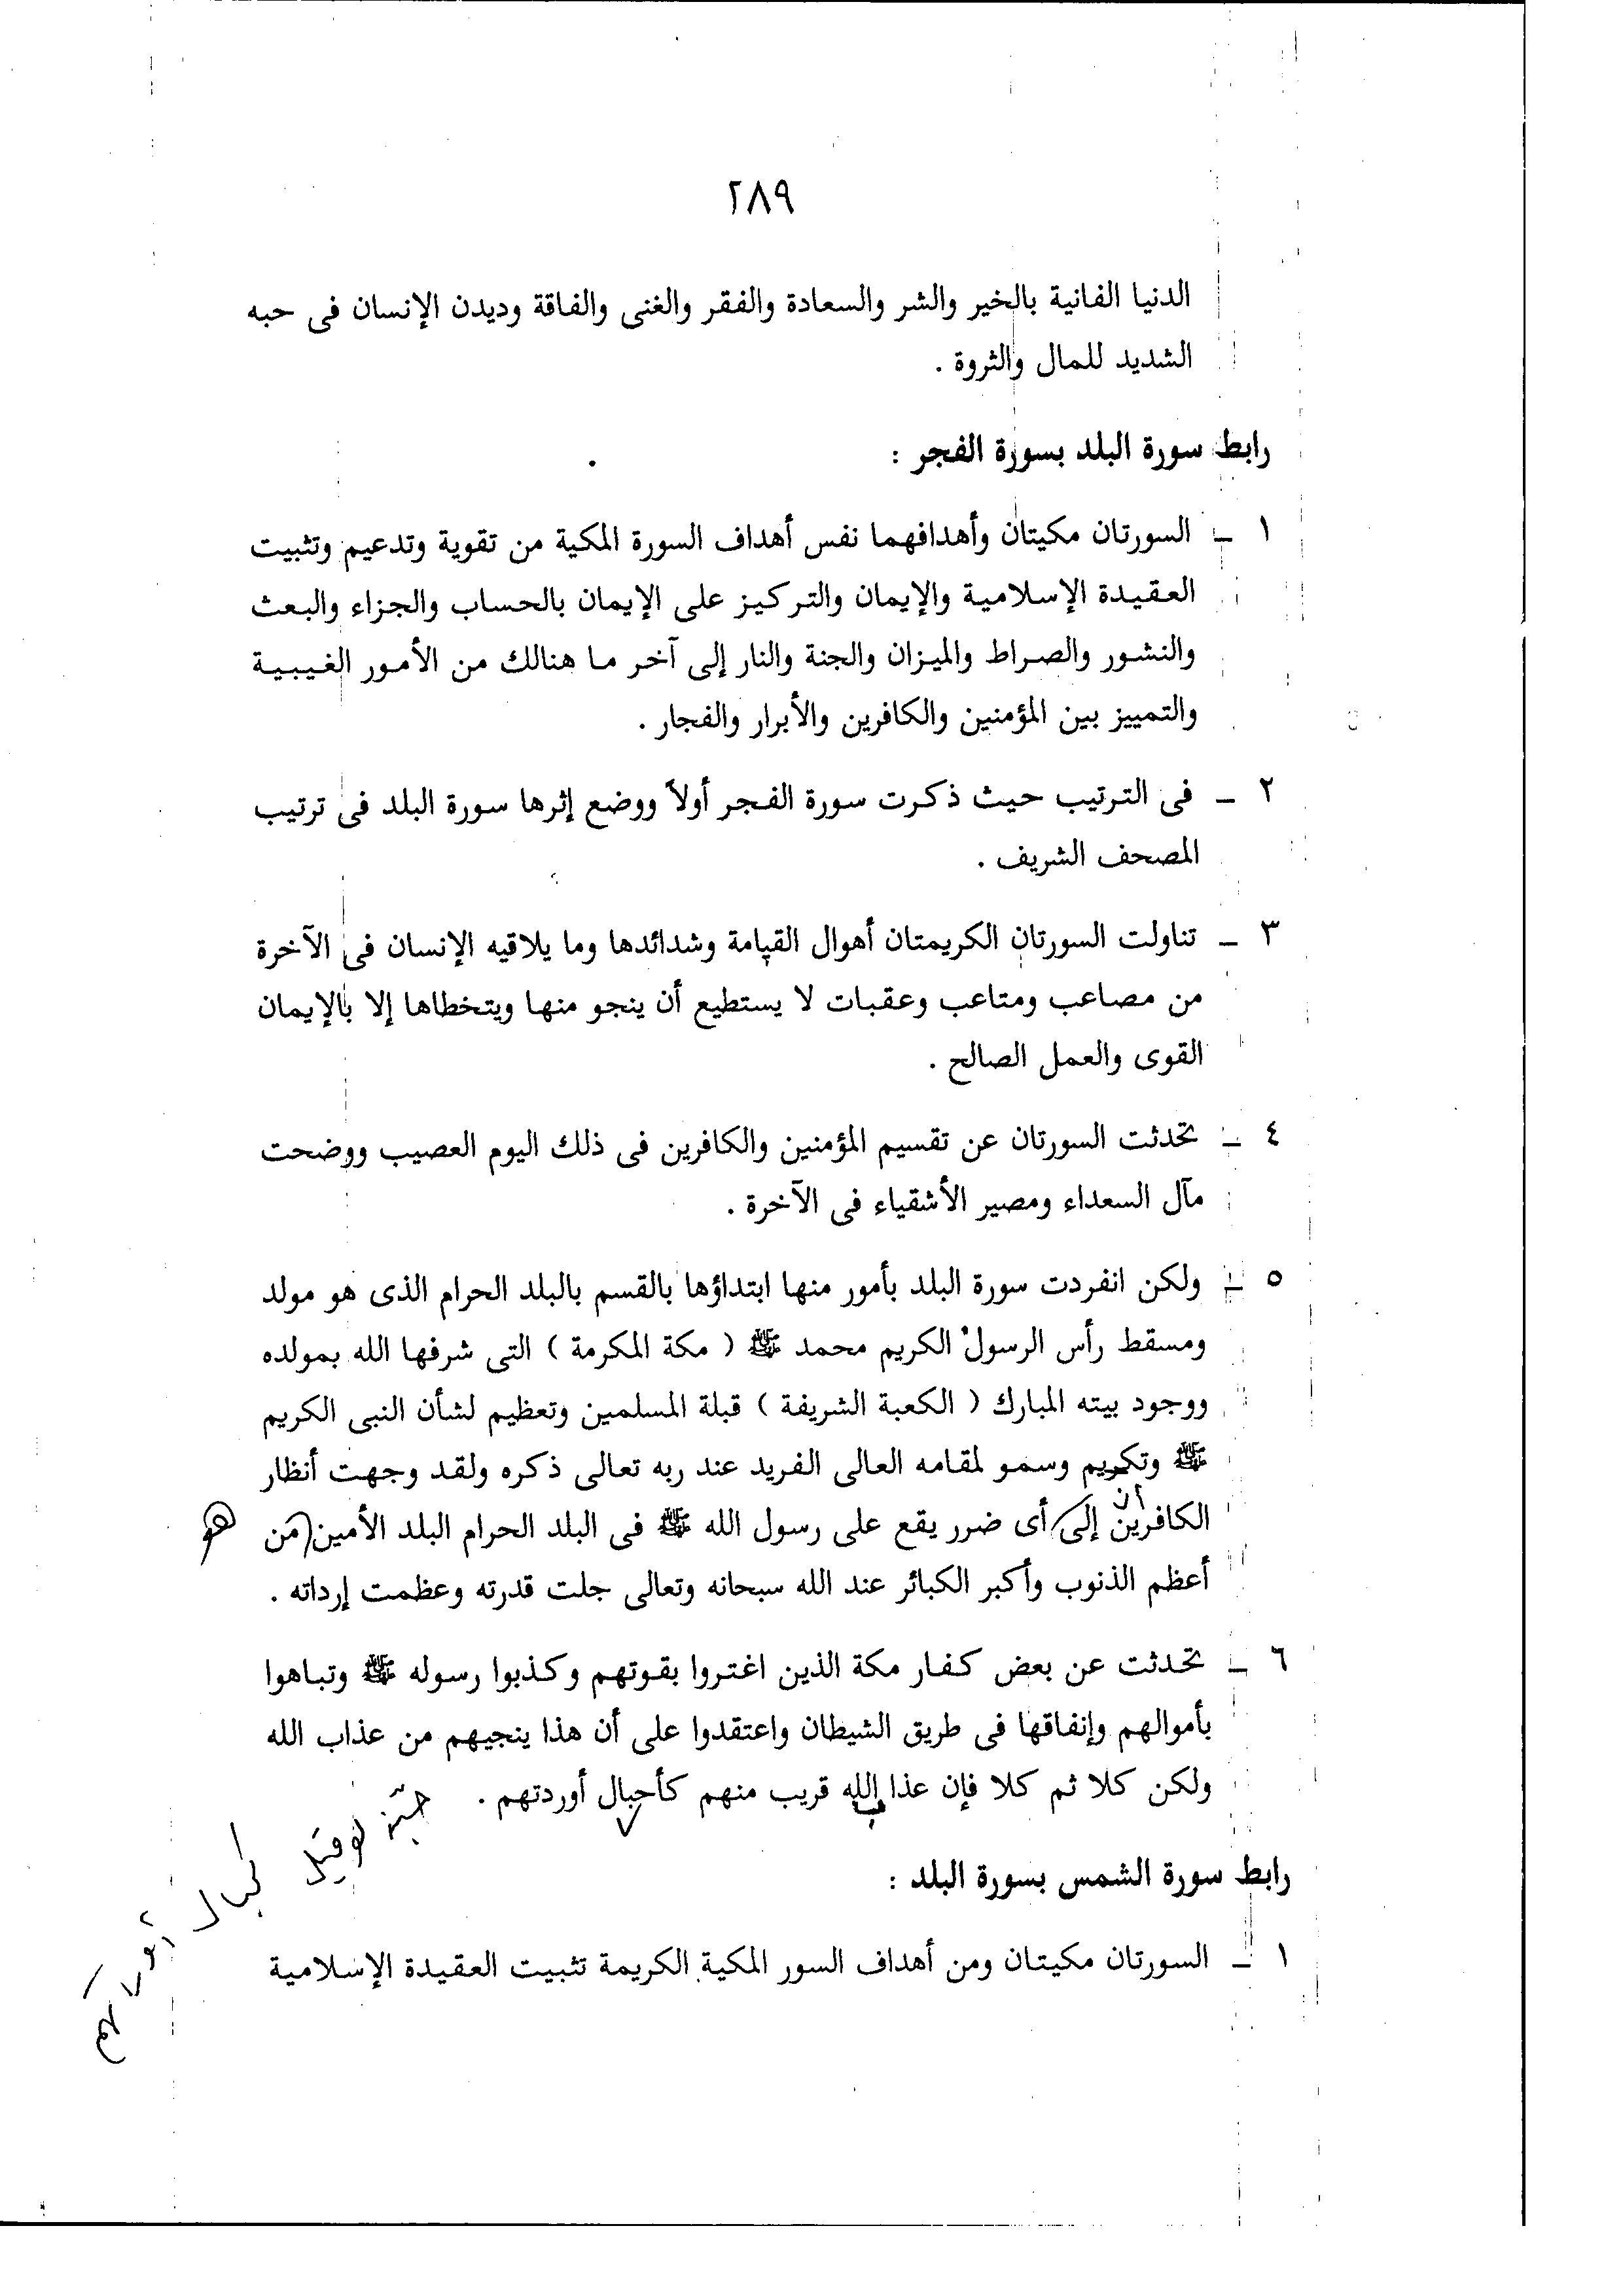 ٢٨٩
الدنيا الفانية بالخير والشر والسعادة والفقر والغنى والفاقة وديدن الإنسان فى حبه
الشديد للمال والثروة .
رابط سورة البلد بسورة الفجر :
١ ـ السورتان مكيتان وأهدافهما نفس أهداف السورة المكية من تقوية وتدعيم وتثبيت
العقيدة الإسلامية والإيمان والتركيز على الإيمان بالحساب والجزاء والبعث
والنشور والصراط والميزان والجنة والنار إلى آخر ما هنالك من الأمور الغيبية
والتمييز بين المؤمنين والكافرين والأبرار والفجار .
٢ ـ فى الترتيب حيث ذكرت سورة الفجر أولاً ووضع إثرها سورة البلد فى ترتيب
المصحف الشريف .
٣ ـ تناولت السورتان الكريمتان أهوال القيامة وشدائدها وما يلاقيه الإنسان فى الآخرة
من مصاعب ومتاعب وعقبات لا يستطيع أن ينجو منها ويتخطاها إلا بالإيمان
القوى والعمل الصالح .
٤ ـ تحدثت السورتان عن تقسيم المؤمنين والكافرين فى ذلك اليوم العصيب ووضحت
مآل السعداء ومصير الأشقياء فى الآخرة .
٥ ـ ولكن انفردت سورة البلد بأمور منها ابتداؤها بالقسم بالبلد الحرام الذى هو مولد
ومسقط رأس الرسول الكريم محمد ﷺ ( مكة المكرمة ) التى شرفها الله بمولده
ووجود بيته المبارك ( الكعبة الشريفة ) قبلة المسلمين وتعظيم لشأن النبى الكريم
ﷺ وتكريم وسمو لمقامه العالى الفريد عند ربه تعالى ذكره ولقد وجهت أنظار
الكافرين إلى أن أى ضرر يقع على رسول الله ﷺ فى البلد الحرام البلد الأمين من هو
أعظم الذنوب وأكبر الكبائر عند الله سبحانه وتعالى جلت قدرته وعظمت إرداته .
٦ ـ تحدثت عن بعض كفار مكة الذين اغتروا بقوتهم وكذبوا رسوله ﷺ وتباهوا
بأموالهم وإنفاقها فى طريق الشيطان واعتقدوا على أن هذا ينجيهم من عذاب الله
ولكن كلا ثم كلا فإن عذا ب الله قريب منهم كأحبال أوردتهم .
رابط سورة الشمس بسورة البلد :
١ ـ السورتان مكيتان ومن أهداف السور المكية الكريمة تثبيت العقيدة الإسلامية